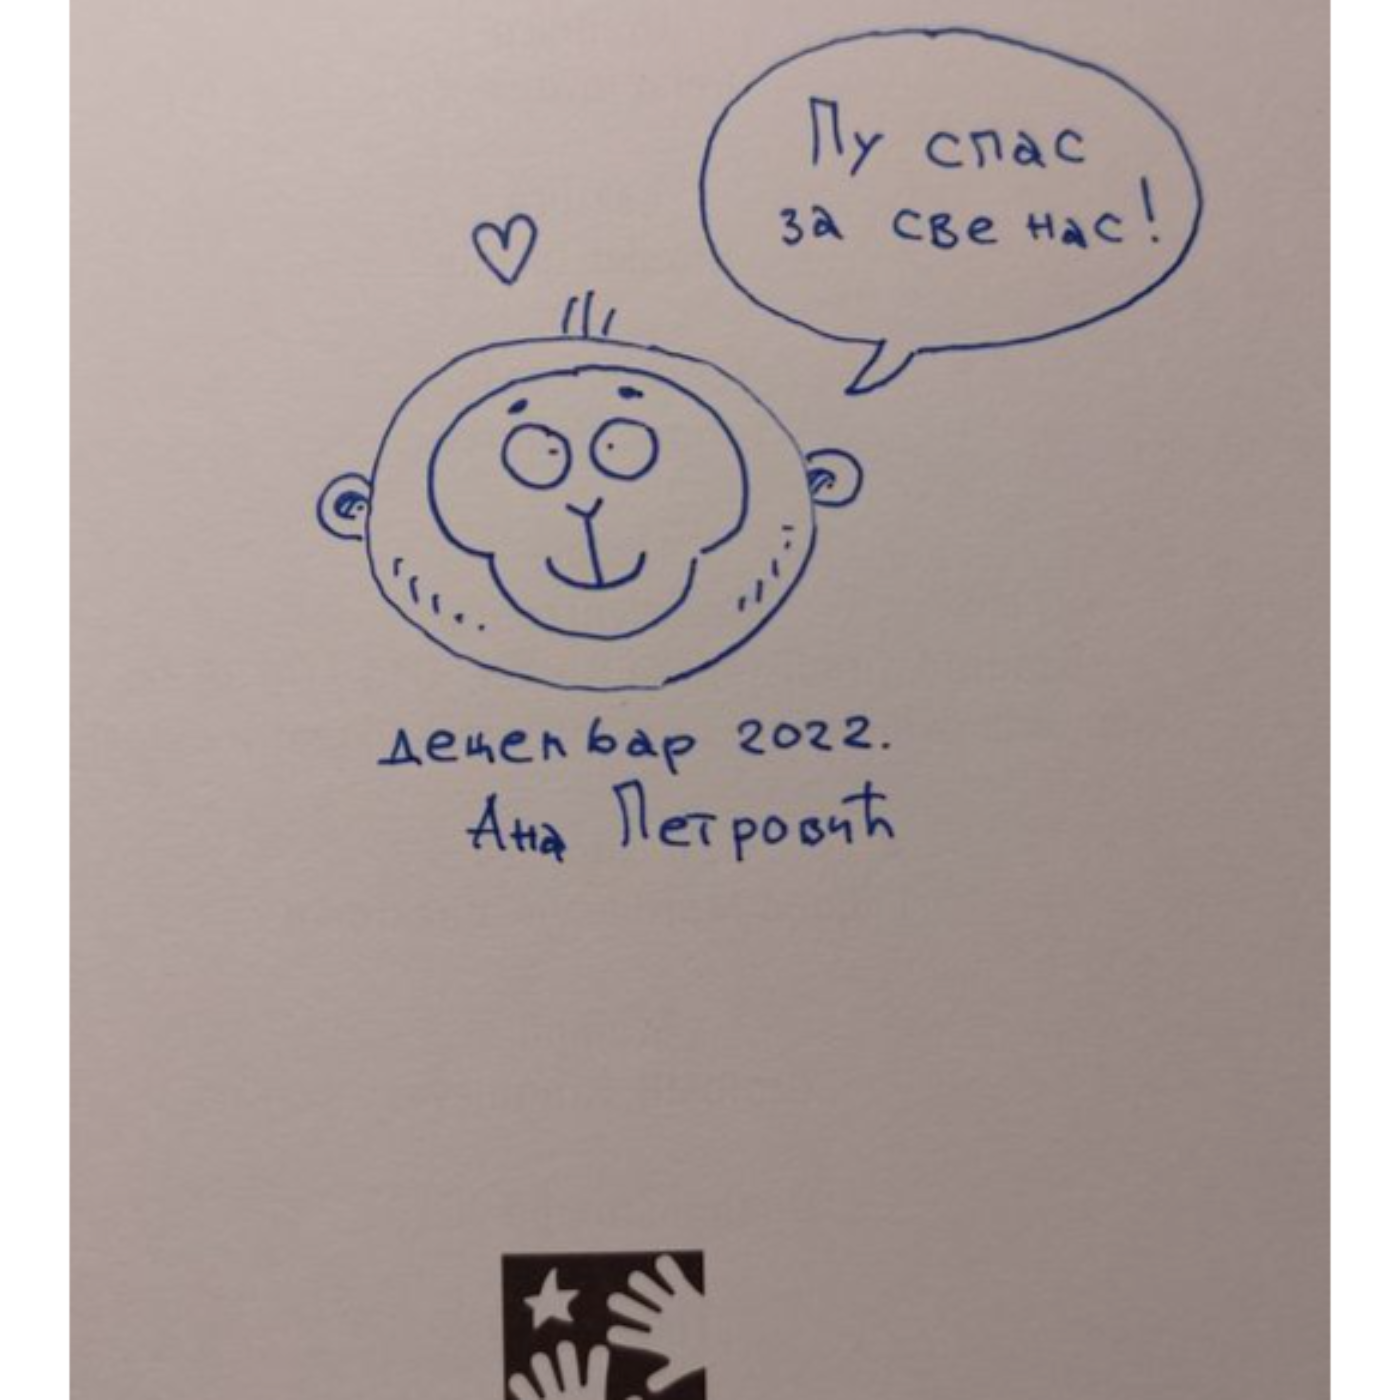 Пу спас
за све нас!
децембар 2022.
Ана Петровић